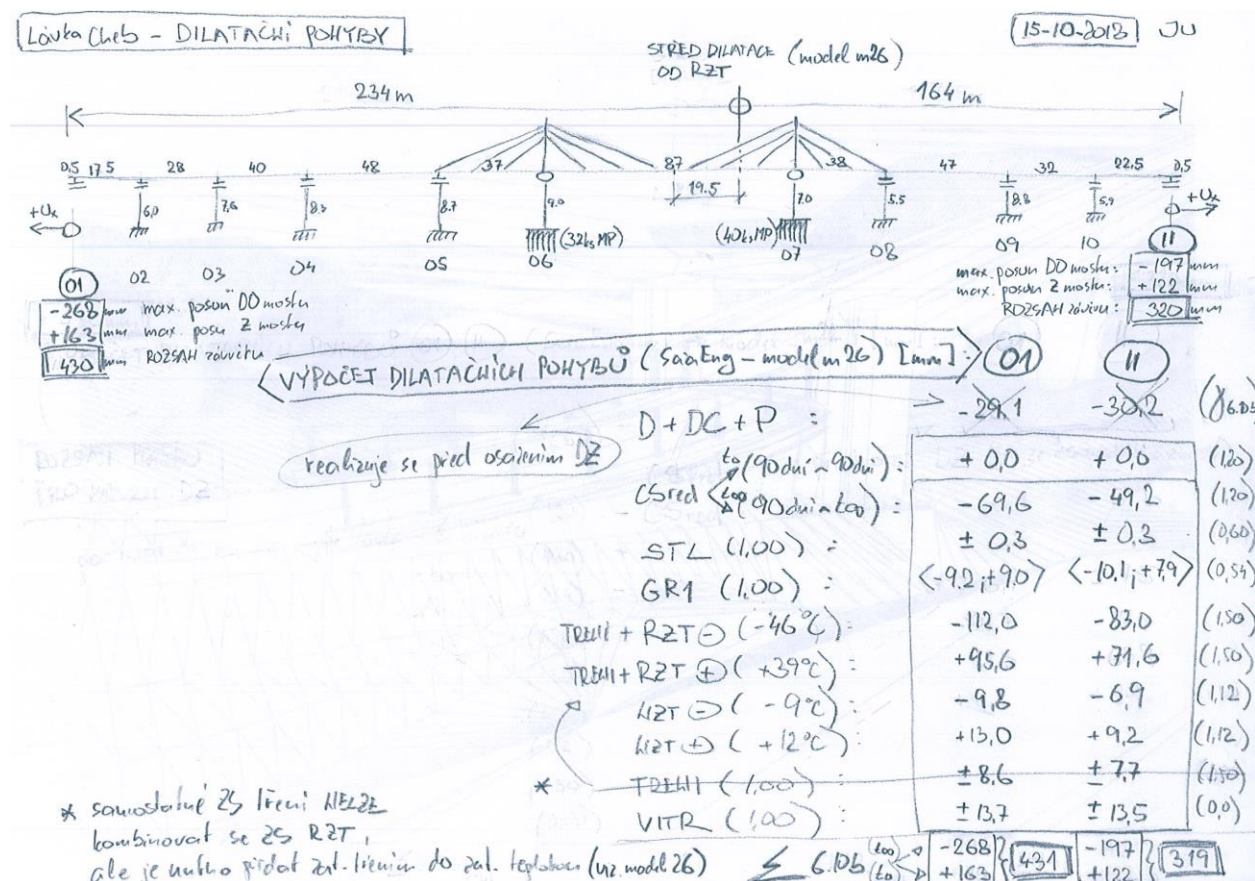 Lávka Cheb – DILATAČNÍ POHYBY
15-10-2013 JU
STŘED DILATACE (model m26)
OD RZT
234 m 164 m
0,5 17.5 28 40 48 37 87 38 47 32 22.5 0,5
19.5
+Ux 6,0 7,6 8.3 8.7 9.0 7.0 5.5 8.8 5,9 +Ux
(32ks MP) (40ks MP)
01 02 03 04 05 06 07 08 09 10 11
-268 mm max. posun DO mostu
+163 mm max. posu Z mostu
430 mm ROZSAH závěru
max. posun DO mostu: -197 mm
max. posun Z mostu: +122 mm
ROZSAH závěru: 320 mm
VÝPOČET DILATAČNÍCH POHYBŮ (SciaEng – model m26) [mm]: 01 11
D + DC + P : -29,1 -30,2
realizuje se před osazením DZ
t0 (90dní ~ 90dní): + 0,0 + 0,0 (1,20)
CSred t∞ (90dní ~ t∞): -69,6 -49,2 (1,20)
STL (1,00) : ± 0,3 ± 0,3 (0,60)
GR1 (1,00) : <-9,2;+9,0> <-10,1;+7,9> (0,54)
TŘENÍ + RZT ⊖ (-46°C): -112,0 -83,0 (1,50)
TŘENÍ + RZT ⊕ (+39°C): +95,6 +71,6 (1,50)
NZT ⊖ ( -9°C): -9,8 -6,9 (1,12)
NZT ⊕ ( +12°C): +13,0 +9,2 (1,12)
* TŘENÍ (1,00) : ± 8,6 ± 7,7 (1,50)
VÍTR (1,00) : ± 13,7 ± 13,5 (0,0)
* samostatné ZS tření NELZE
kombinovat se ZS RZT,
ale je nutno přidat zat. třením do zat. teplotou (viz. model 26)
Σ 6.10b (t∞) -268 431 -197 319
(t0) +163 +122